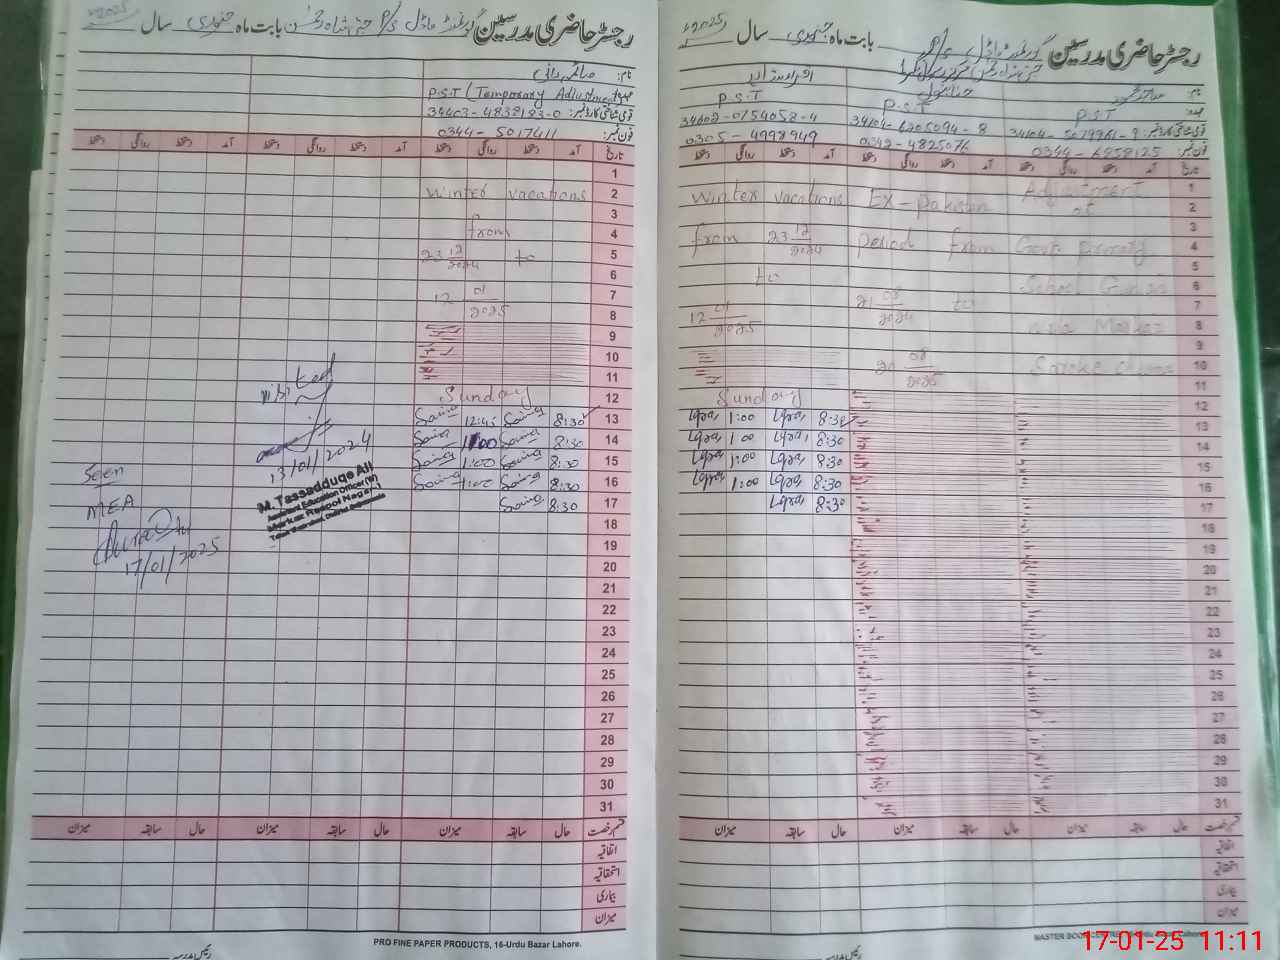 رجسٹر حاضری مدرسین گورنمنٹ ماڈل P/S بابت ماہ جنوری سال 2025ء
نام: صائمہ رانی
عہدہ P.S.T (Temporary Adjustment)
قومی شناختی کارڈ نمبر: 34403-4832193-0
فون نمبر: 0344-5017411
تاریخ آمد دستخط روانگی دستخط آمد دستخط روانگی دستخط آمد دستخط روانگی دستخط
1
2 Winter vacations
3
4 from
5 23 12/2024 to
6
7 12 01/2025
8
9
10
11
12 Sunday
13 8:30 Saima 12:45 Saima
14 8:30 Saima 1:00 Saima
15 8:30 Saima 1:00 Saima
16 8:30 Saima 1:00 Saima
17 8:30 Saima
18
19
20
21
22
23
24
25
26
27
28
29
30
31
visited
13/01/2024
M. Tassadduqe Ali
Assistant Education Officer (W)
Markaz Rasool Nagar-I
Seen
MEA
17/01/2025
قسم رخصت حال سابقہ میزان حال سابقہ میزان حال سابقہ میزان
اتفاقیہ
استحقاقیہ
بیماری
میزان
PRO FINE PAPER PRODUCTS, 16-Urdu Bazar Lahore.
رئیس مدرسہ
رجسٹر حاضری مدرسین گورنمنٹ ماڈل P/S بابت ماہ جنوری سال 2025ء
نام
عہدہ P.S.T P.S.T P.S.T
قومی شناختی کارڈ نمبر: 34104-5079961-9 34104-6205094-8 34602-0154058-4
فون نمبر: 0344-6858125 0342-4825076 0305-4998949
تاریخ آمد دستخط روانگی دستخط آمد دستخط روانگی دستخط آمد دستخط روانگی دستخط
Adjustment
at
Govt. primary
School
Saroke cheema
Ex-pakistan
period from
21 08/2024 to
20 08/2025
Winter vacations
from 23 12/2024
to
12 01/2025
Sunday
8:30 Iqra 1:00 Iqra
8:30 Iqra 1:00 Iqra
8:30 Iqra 1:00 Iqra
8:30 Iqra 1:00 Iqra
8:30 Iqra
1
2
3
4
5
6
7
8
9
10
11
12
13
14
15
16
17
18
19
20
21
22
23
24
25
26
27
28
29
30
31
قسم رخصت حال سابقہ میزان حال سابقہ میزان حال سابقہ میزان
اتفاقیہ
استحقاقیہ
بیماری
میزان
رئیس مدرسہ
17-01-25 11:11